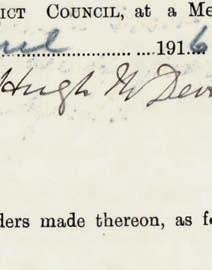 ICT COUNCIL, at a Me
ril 1916
Hugh McDev
ders made thereon, as f